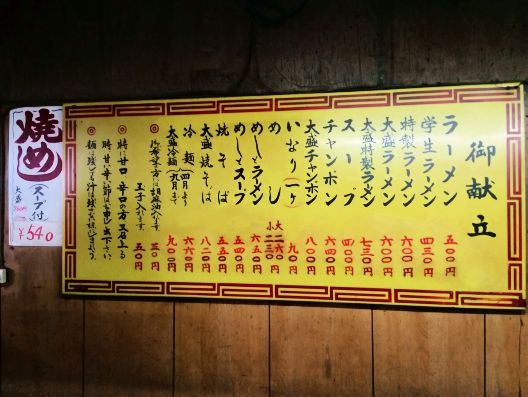 御献立
ラーメン 五〇〇円
学生ラーメン 四三〇円
特製ラーメン 六〇〇円
大盛ラーメン 六〇〇円
大盛特製ラーメン 七三〇円
スープ 四〇〇円
チャンポン 六四〇円
大盛チャンポン 八〇〇円
いなり(一ヶ) 九〇円
めし 大 小
めしとラーメン 六五〇円
めしとスープ 五四〇円
焼そば 五五〇円
大盛焼そば 八二〇円
冷麺(四月より 六六〇円
大盛冷麺 九月まで) 九〇〇円
◎御希望の方に胡麻油入れます 三〇円
玉子入れます 五〇円
◎特に甘口 辛口の方
お申し出下さい
焼めし
スープ付
大盛
¥540